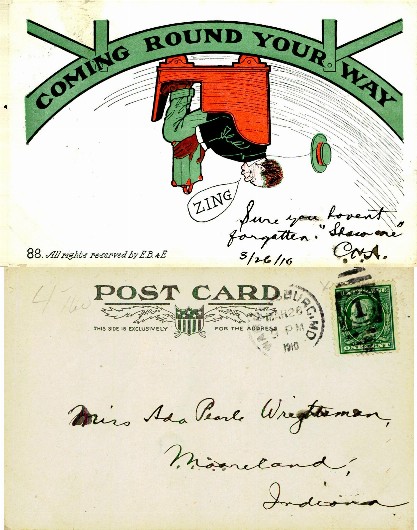 COMING ROUND YOUR WAY
ZING
Sure you havent
forgotten "Show me"
C.N.A.
3/26/10
88. All rights reserved by E.B. & E
POST CARD
THIS SIDE IS EXCLUSIVELY FOR THE ADDRESS
BURG, MD
26
PM
1910
1
ONE CENT
Miss Ada Pearle Wrightsman,
Mooreland,
Indiana